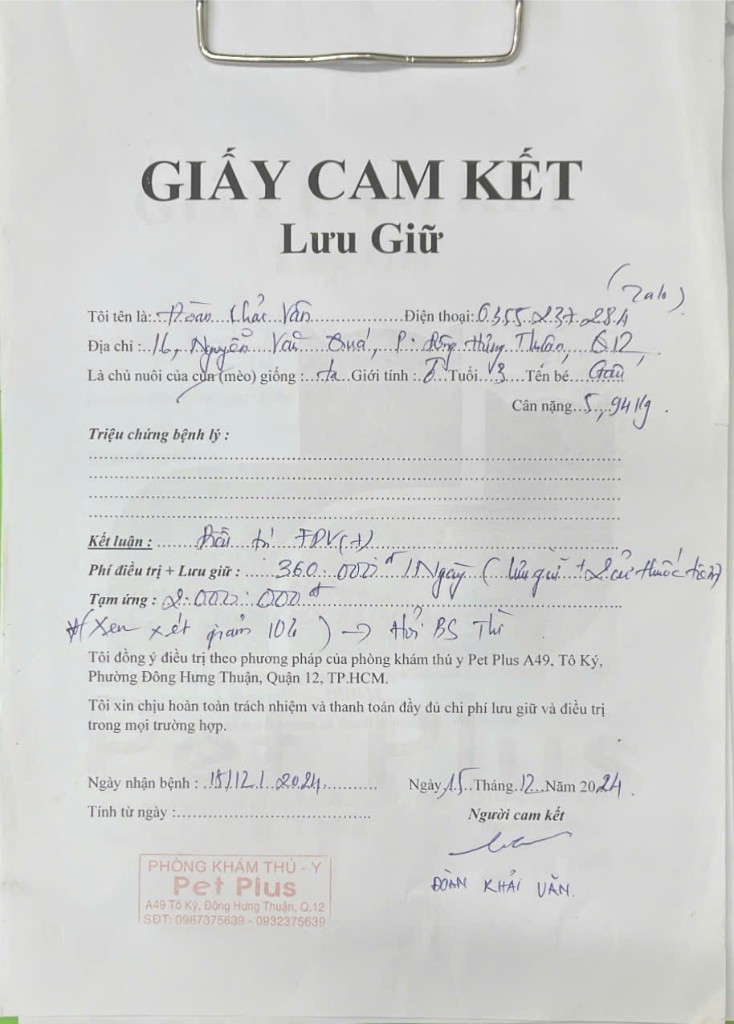 GIẤY CAM KẾT
Lưu Giữ
(Zalo)
Tôi tên là: Đoàn Khải Văn Điện thoại: 0355.237.284
Địa chỉ : 16, Nguyễn Văn Quá, P. Đông Hưng Thuận, Q12
Là chủ nuôi của cún (mèo) giống : ta Giới tính : Tuổi 3 Tên bé Gấu
Cân nặng 5,94 Kg.
Triệu chứng bệnh lý :
Kết luận : Điều trị FPV(+)
Phí điều trị + Lưu giữ : 360.000đ /Ngày ( lưu giữ + 2 cử thuốc tiêm)
Tạm ứng : 2.000.000đ
*(Xem xét giảm 10% ) → Hỏi BS Thi
Tôi đồng ý điều trị theo phương pháp của phòng khám thú y Pet Plus A49, Tô Ký,
Phường Đông Hưng Thuận, Quận 12, TP.HCM.
Tôi xin chịu hoàn toàn trách nhiệm và thanh toán đầy đủ chi phí lưu giữ và điều trị
trong mọi trường hợp.
Ngày nhận bệnh : 15/12/2024 Ngày 15 Tháng 12 Năm 2024
Tính từ ngày : Người cam kết
ĐOÀN KHẢI VĂN.
PHÒNG KHÁM THÚ - Y
Pet Plus
A49 Tô Ký, Đông Hưng Thuận, Q.12
SĐT: 0987375639 - 0932375639